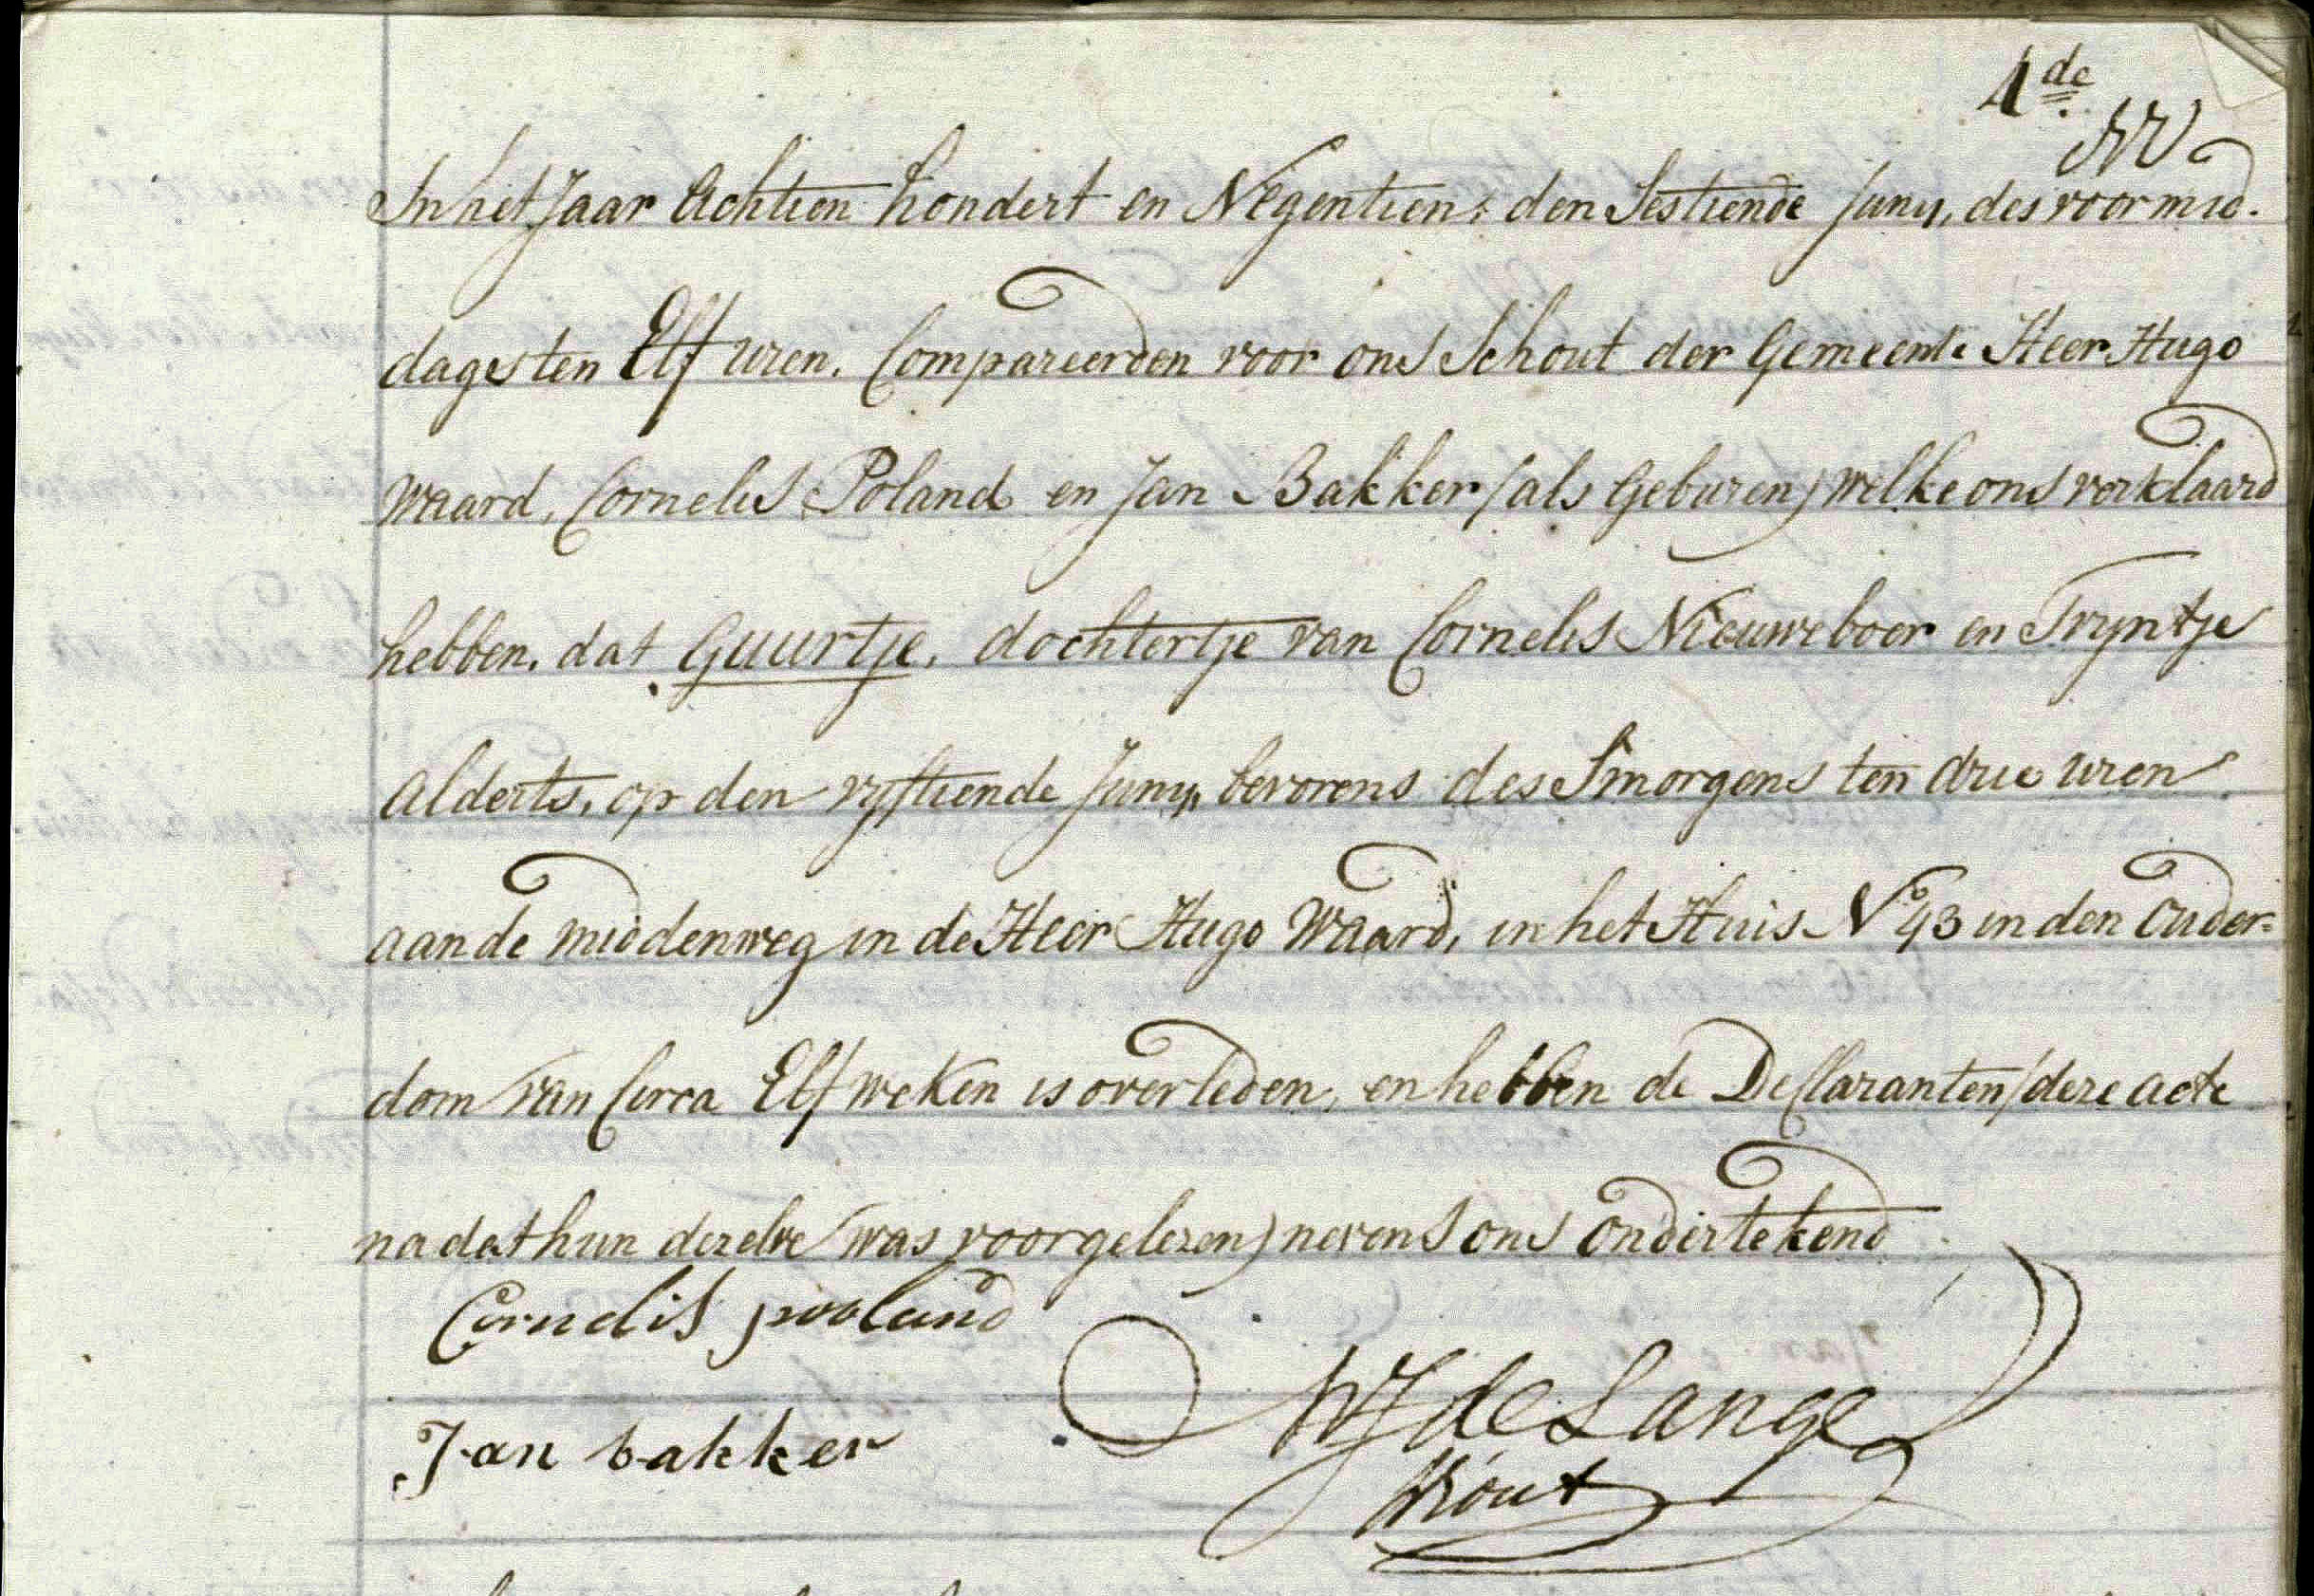 4de
In het Jaar Achtien hondert en Negentien, den Sestiende Juny, des voormid-
dags ten Elf uren. Compareerden voor ons Schout der Gemeente Heer Hugo
Waard, Cornelis Poland en Jan Bakker (als Geburen) welke ons verklaard
hebben, dat Guurtje, dochtertje van Cornelis Nieuweboer en Tryntje
Alderts, op den vyftiende Juny, bevorens des Smorgens ten drie uren
aan de middenweg in de Heer Hugo Waard, in het Huis No 43 in den Ouder=
dom van Circa Elf weken is overleden, en hebben de Declaranten (deze acte
na dat hun dezelve was voorgelezen) nevens ons ondertekend
Cornelis pooland
Jan bakker
WJ de Lange
Schout